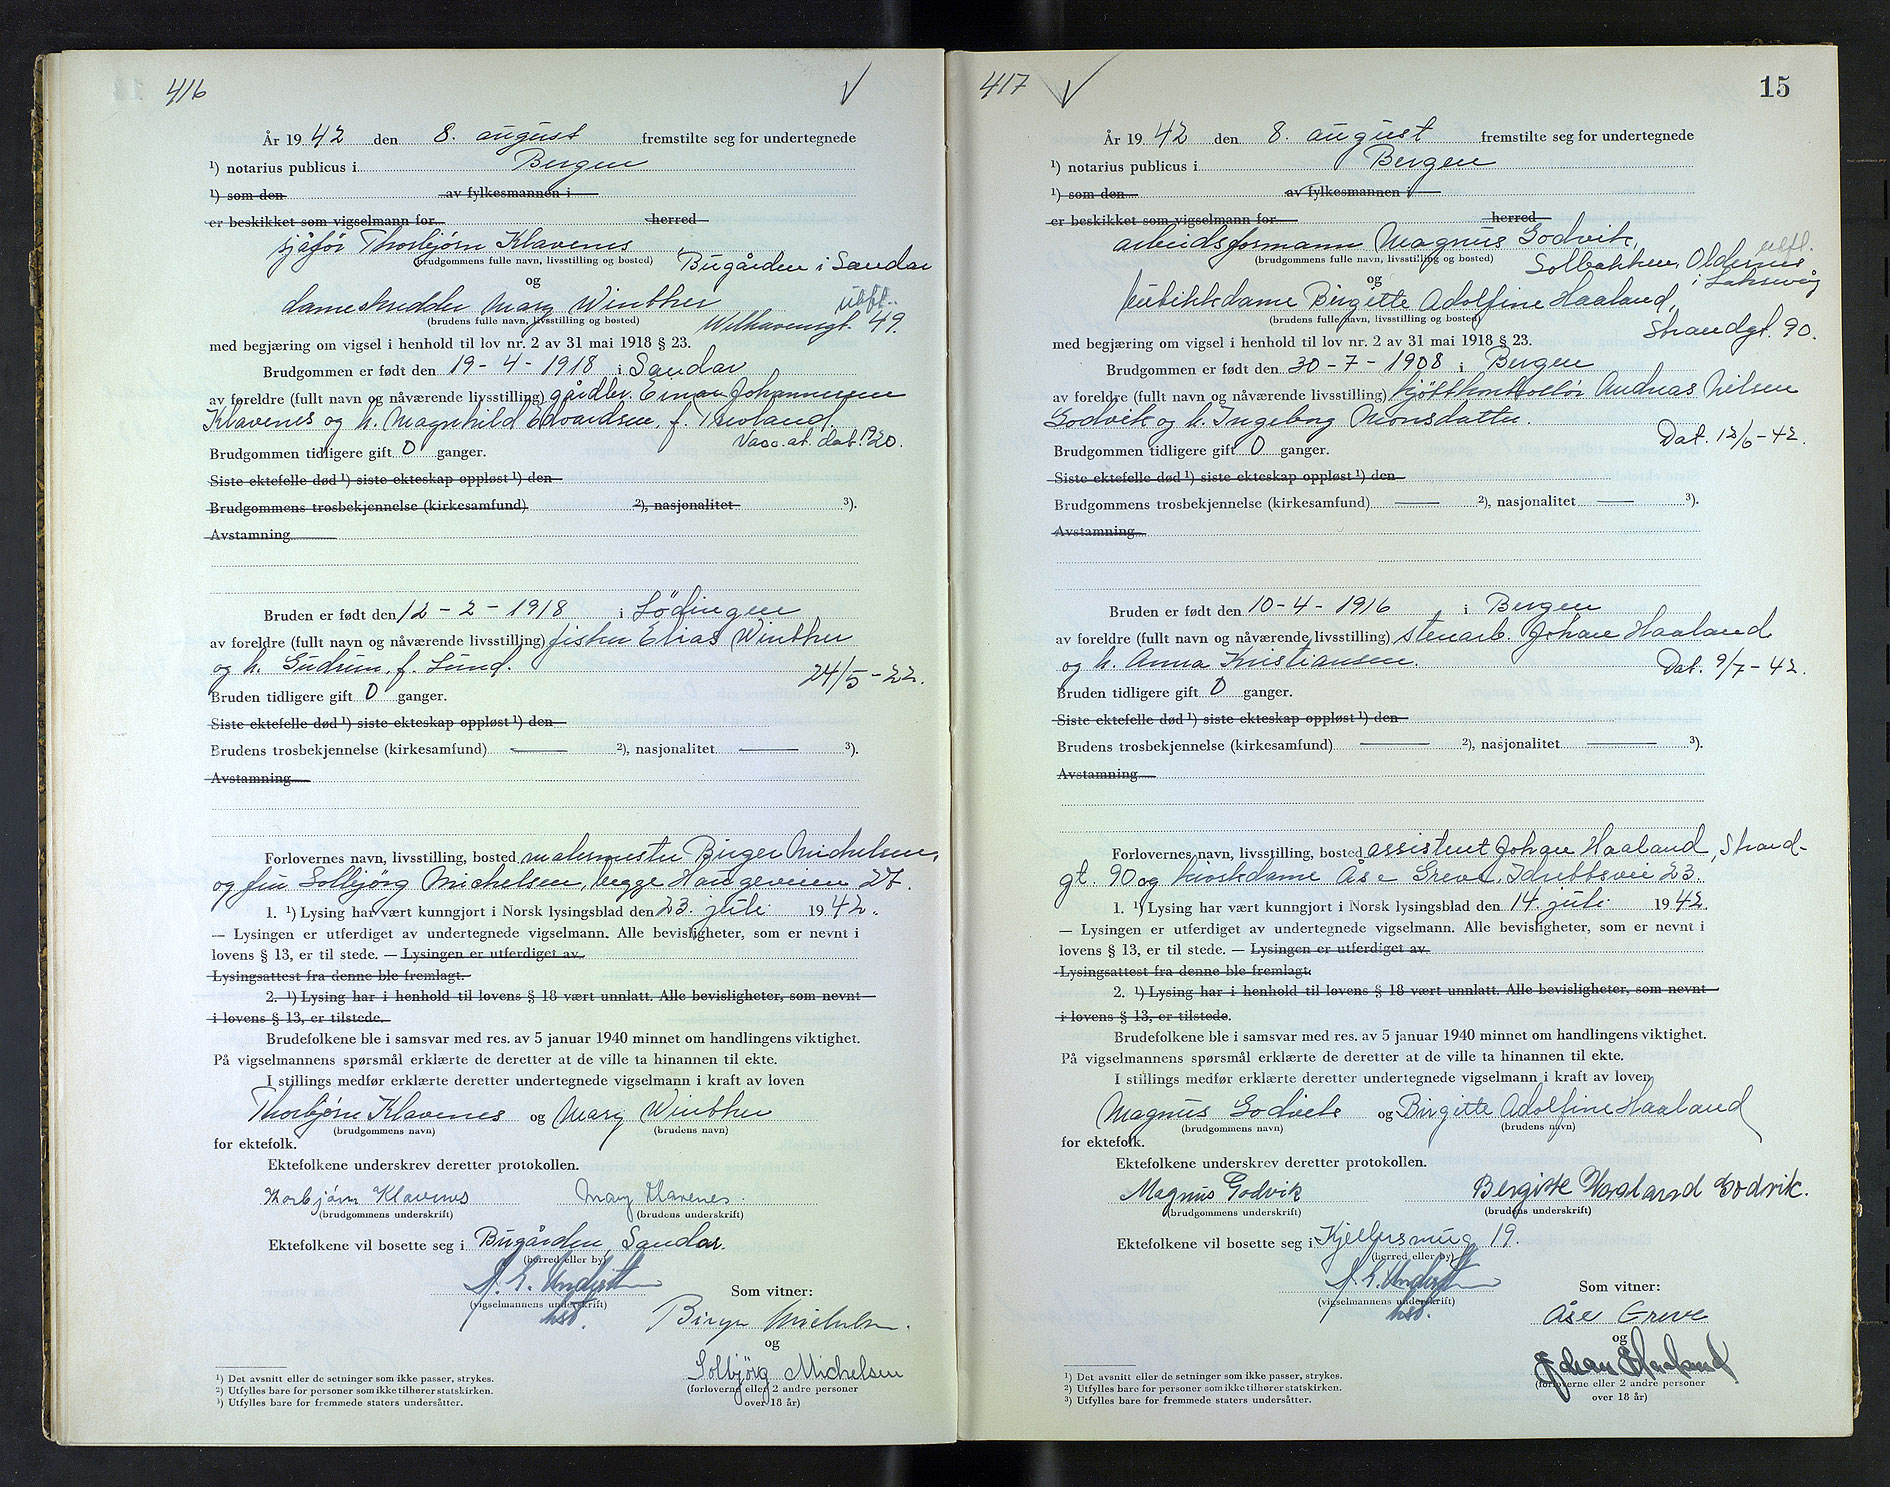 416
År 1942 den 8. august fremstilte seg for undertegnede
¹) notarius publicus i Bergen
¹) som den av fylkesmannen i
er beskikket som vigselmann for herred
sjåfør Thorbjørn Klavenes
(brudgommens fulle navn, livsstilling og bosted) Bugården i Sandar
og
dameskredder Mary Winther utfl.
(brudens fulle navn, livsstilling og bosted) Welhavensgt. 49.
med begjæring om vigsel i henhold til lov nr. 2 av 31 mai 1918 § 23.
Brudgommen er født den 19-4-1918 i Sandar
av foreldre (fullt navn og nåværende livsstilling) gårdbr. Einar Johannessen
Klavenes og h. Magnhild Edvardsen f.
Vacc.at. dat. 1920.
Brudgommen tidligere gift 0 ganger.
Siste ektefelle død ¹) siste ekteskap oppløst ¹) den
Brudgommens trosbekjennelse (kirkesamfund) ²), nasjonalitet ³).
Avstamning
Bruden er født den 12-2-1918 i Lödingen
av foreldre (fullt navn og nåværende livsstilling) fisker Elias Winther
og h. Gudrun, f. Lund.
24/5-22.
Bruden tidligere gift 0 ganger.
Siste ektefelle død ¹) siste ekteskap oppløst ¹) den
Brudens trosbekjennelse (kirkesamfund) — ²), nasjonalitet — ³).
Avstamning
Forlovernes navn, livsstilling, bosted malermester Birger Michelsen,
og fru Solbjörg Michelsen, begge Haugeveien 27.
1. ¹) Lysing har vært kunngjort i Norsk lysingsblad den 23. juli 1942.
— Lysingen er utferdiget av undertegnede vigselmann. Alle bevisligheter, som er nevnt i
lovens § 13, er til stede. — Lysingen er utferdiget av
Lysingsattest fra denne ble fremlagt.
2. ¹) Lysing har i henhold til lovens § 18 vært unnlatt. Alle bevisligheter, som nevnt
i lovens § 13, er tilstede.
Brudefolkene ble i samsvar med res. av 5 januar 1940 minnet om handlingens viktighet.
På vigselmannens spørsmål erklærte de deretter at de ville ta hinannen til ekte.
I stillings medfør erklærte deretter undertegnede vigselmann i kraft av loven
Thorbjørn Klavenes og Mary Winther
(brudgommens navn) (brudens navn)
for ektefolk.
Ektefolkene underskrev deretter protokollen.
Thorbjørn Klavenes Mary Klavenes.
(brudgommens underskrift) (brudens underskrift)
Ektefolkene vil bosette seg i Bugården, Sandar.
(herred eller by)
(vigselmannens underskrift)
Som vitner:
Birger Michelsen.
og
Solbjörg Michelsen
(forloverne eller 2 andre personer
over 18 år)
¹) Det avsnitt eller de setninger som ikke passer, strykes.
²) Utfylles bare for personer som ikke tilhører statskirken.
³) Utfylles bare for fremmede staters undersåtter.
417
15
År 1942 den 8. august fremstilte seg for undertegnede
¹) notarius publicus i Bergen
¹) som den av fylkesmannen i
er beskikket som vigselmann for herred
arbeidsformann Magnus Godvik, utfl.
(brudgommens fulle navn, livsstilling og bosted) Solbakken, Oldernes
i Laksevåg
og
butikkdame Birgitte Adolfine Haaland,
(brudens fulle navn, livsstilling og bosted) Strandgt. 90.
med begjæring om vigsel i henhold til lov nr. 2 av 31 mai 1918 § 23.
Brudgommen er født den 30-7-1908 i Bergen
av foreldre (fullt navn og nåværende livsstilling) kjøttkontrollør Andreas Nilsen
Godvik og h. Ingeborg Monsdatter.
Dat. 12/6-42.
Brudgommen tidligere gift 0 ganger.
Siste ektefelle død ¹) siste ekteskap oppløst ¹) den
Brudgommens trosbekjennelse (kirkesamfund) — ²), nasjonalitet — ³).
Avstamning
Bruden er født den 10-4-1916 i Bergen
av foreldre (fullt navn og nåværende livsstilling) stenarb. Johan Haaland
og h. Anna Kristiansen.
Dat. 9/7-42.
Bruden tidligere gift 0 ganger.
Siste ektefelle død ¹) siste ekteskap oppløst ¹) den
Brudens trosbekjennelse (kirkesamfund) — ²), nasjonalitet — ³).
Avstamning
Forlovernes navn, livsstilling, bosted assistent Johan Haaland, Strand-
gt. 90 og kioskdame Åse Greve, Idrettsvei 23.
1. ¹) Lysing har vært kunngjort i Norsk lysingsblad den 14. juli 1942.
— Lysingen er utferdiget av undertegnede vigselmann. Alle bevisligheter, som er nevnt i
lovens § 13, er til stede. — Lysingen er utferdiget av
Lysingsattest fra denne ble fremlagt.
2. ¹) Lysing har i henhold til lovens § 18 vært unnlatt. Alle bevisligheter, som nevnt
i lovens § 13, er tilstede.
Brudefolkene ble i samsvar med res. av 5 januar 1940 minnet om handlingens viktighet.
På vigselmannens spørsmål erklærte de deretter at de ville ta hinannen til ekte.
I stillings medfør erklærte deretter undertegnede vigselmann i kraft av loven
Magnus Godvik og Birgitte Adolfine Haaland
(brudgommens navn) (brudens navn)
for ektefolk.
Ektefolkene underskrev deretter protokollen.
Magnus Godvik Bergitte Haaland Godvik.
(brudgommens underskrift) (brudens underskrift)
Ektefolkene vil bosette seg i Kjellersmug 19.
(herred eller by)
(vigselmannens underskrift)
Som vitner:
Åse Greve
og
Johan Haaland
(forloverne eller 2 andre personer
over 18 år)
¹) Det avsnitt eller de setninger som ikke passer, strykes.
²) Utfylles bare for personer som ikke tilhører statskirken.
³) Utfylles bare for fremmede staters undersåtter.